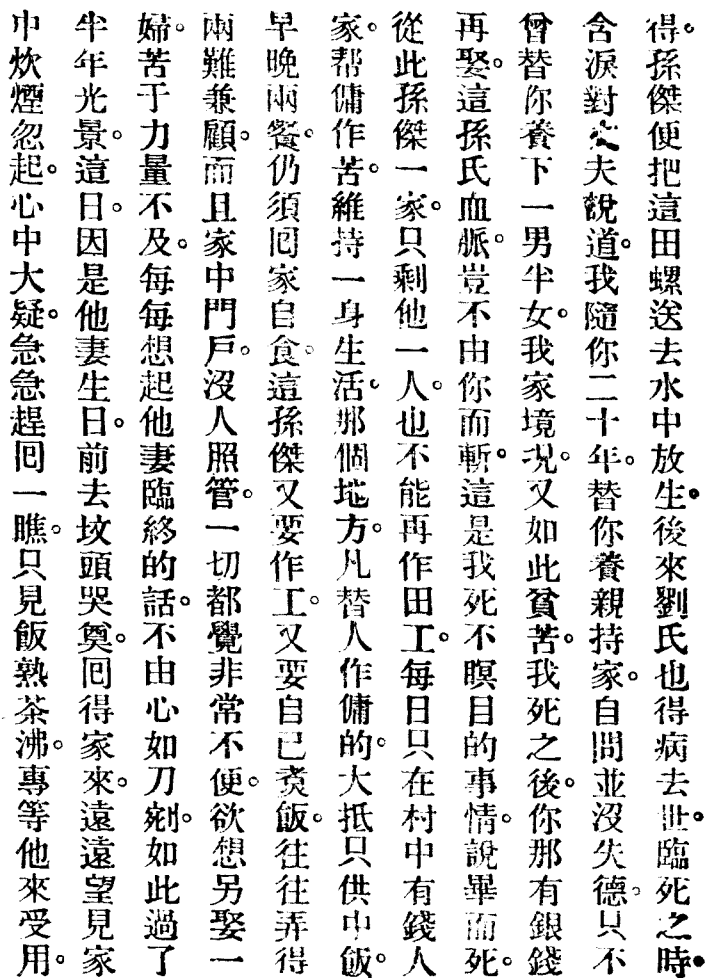 得。孫傑便把這田螺送去水中放生。後來劉氏也得病去世。臨死之時。
含淚對丈夫說道。我隨你二十年。替你養親持家。自問並沒失德。只不
曾替你養下一男半女。我家境况。又如此貧苦。我死之後。你那有銀錢
再娶。這孫氏血脈。豈不由你而斬。這是我死不瞑目的事情。說畢而死。
從此孫傑一家。只剩他一人。也不能再作田工。每日只在村中有錢人
家。帮傭作苦。維持一身生活。那個地方。凡替人作傭的。大抵只供中飯。
早晚兩餐。仍須囘家自食。這孫傑又要作工。又要自己煑飯。往往弄得
兩難兼顧。而且家中門戶。沒人照管。一切都覺非常不便。欲想另娶一
婦。苦于力量不及。每每想起他妻臨終的話。不由心如刀剜。如此過了
半年光景。這日。因是他妻生日。前去坟頭哭奠。囘得家來。遠遠望見家
中炊煙忽起。心中大疑。急急趕囘一瞧。只見飯熟茶沸。專等他來受用。